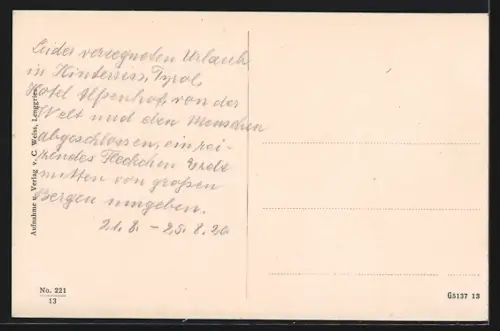 Leider verregneten Urlaub
in Hinterriss, Tyrol,
Hotel Alpenhof, von der
Welt und den Menschen
abgeschlossen, ein rei-
zendes Fleckchen Erde
mitten von großen
Bergen umgeben.
21.8. – 25.8.
Aufnahme u. Verlag v. C. Weiss, Lenggries
No. 221
13
G5137 13